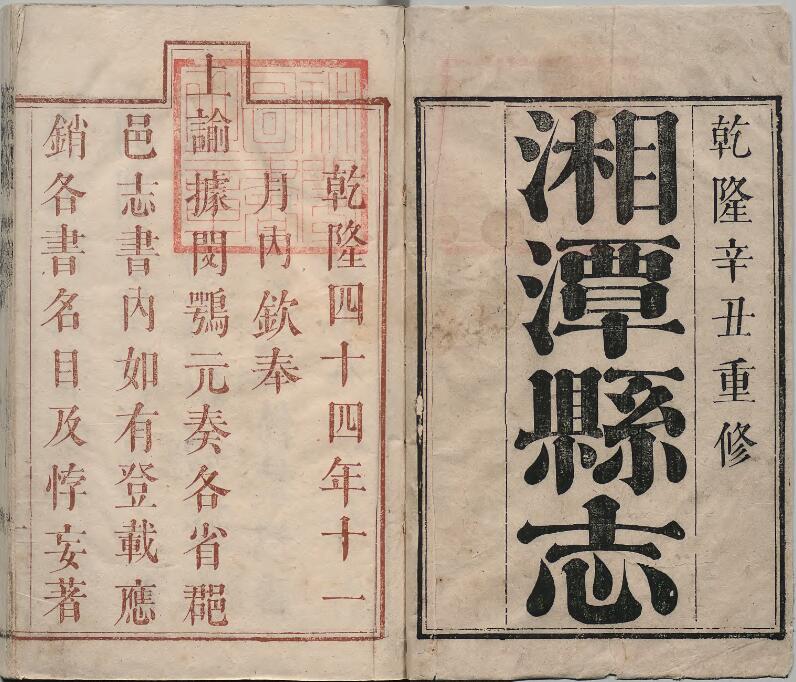 乾隆辛丑重修
湘潭縣志
乾隆四十四年十一
月內欽奉
上諭據閔鶚元奏各省郡
邑志書內如有登載應
銷各書名目及悖妄著